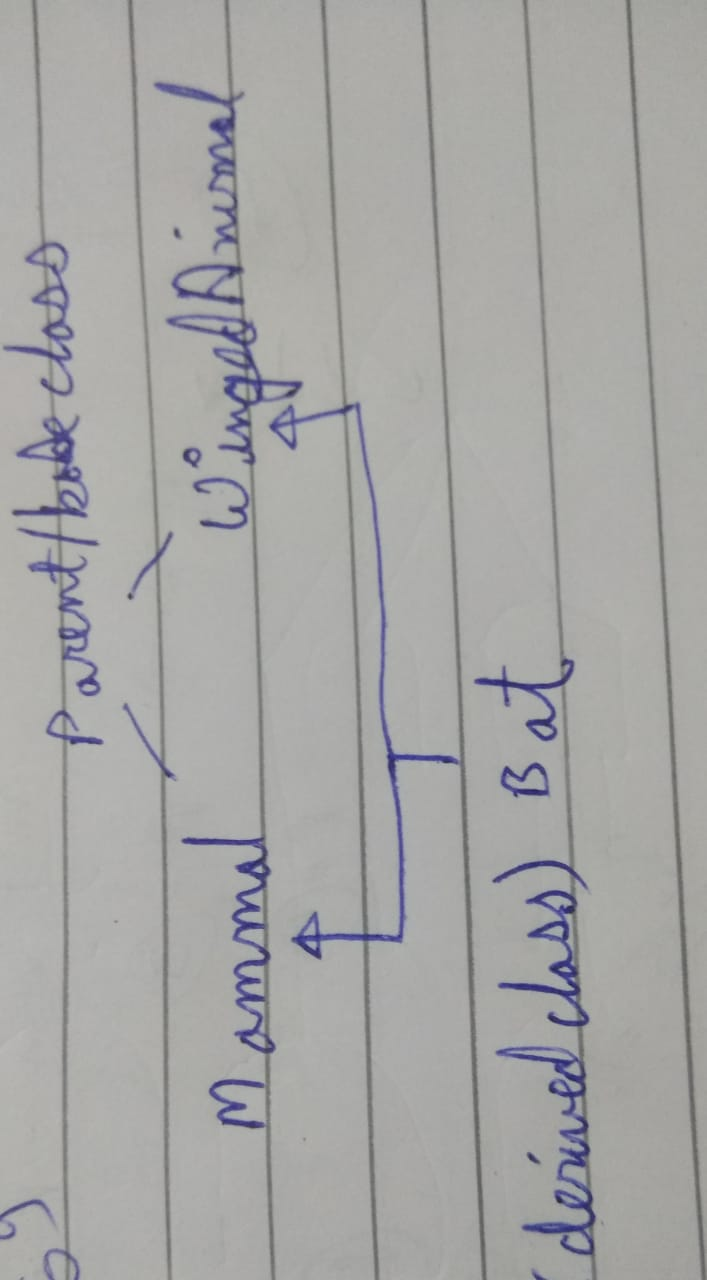 Parent/base class
Mammal WingedAnimal
(derived class) Bat